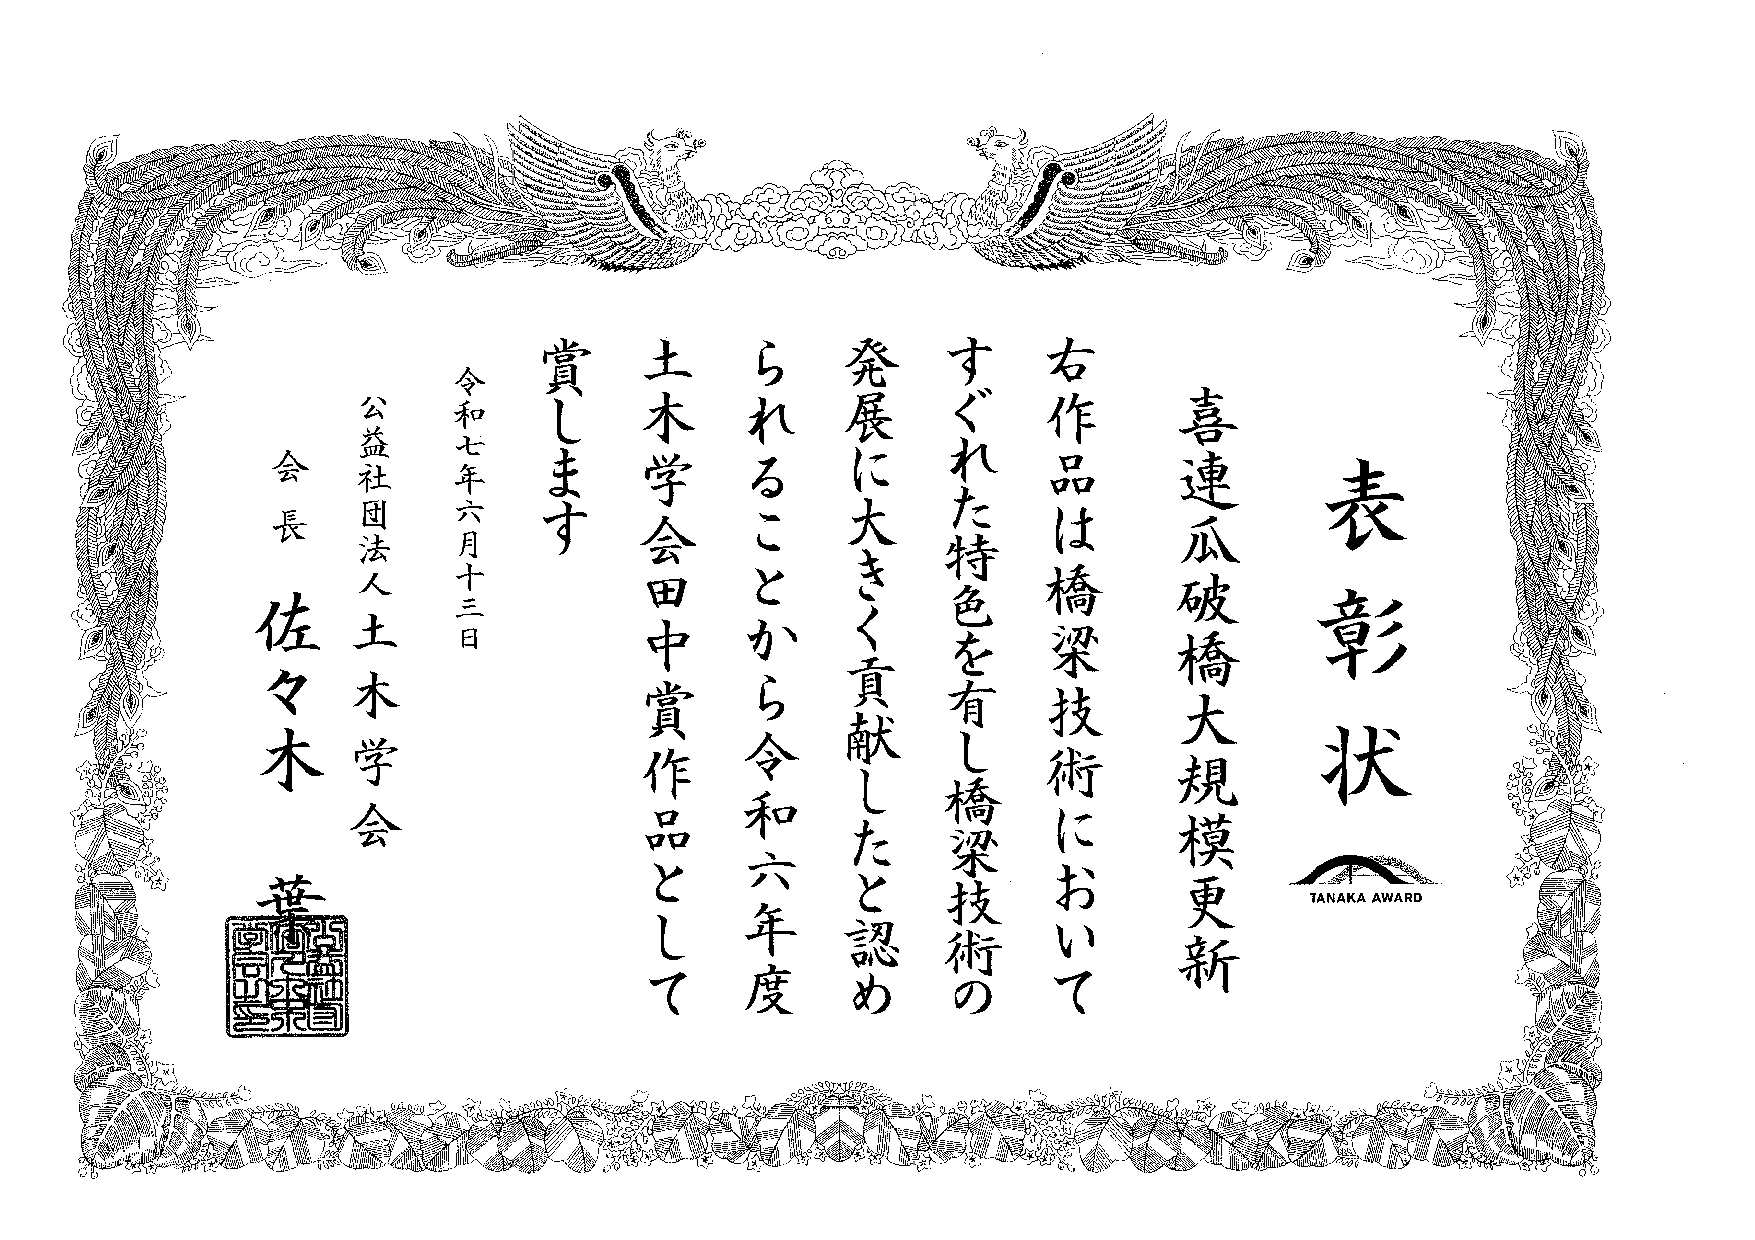 表彰状
TANAKA AWARD
喜連瓜破橋大規模更新
右作品は橋梁技術において
すぐれた特色を有し橋梁技術の
発展に大きく貢献したと認め
られることから令和六年度
土木学会田中賞作品として
賞します
令和七年六月十三日
公益社団法人土木学会
会長 佐々木 葉